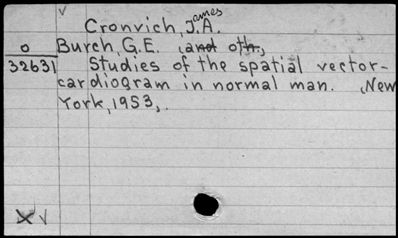 Cronvich, James A.
o Burch, G.E. and oth.,
32631 Studies of the spatial vector-
cardiogram in normal man. New
York, 1953,.